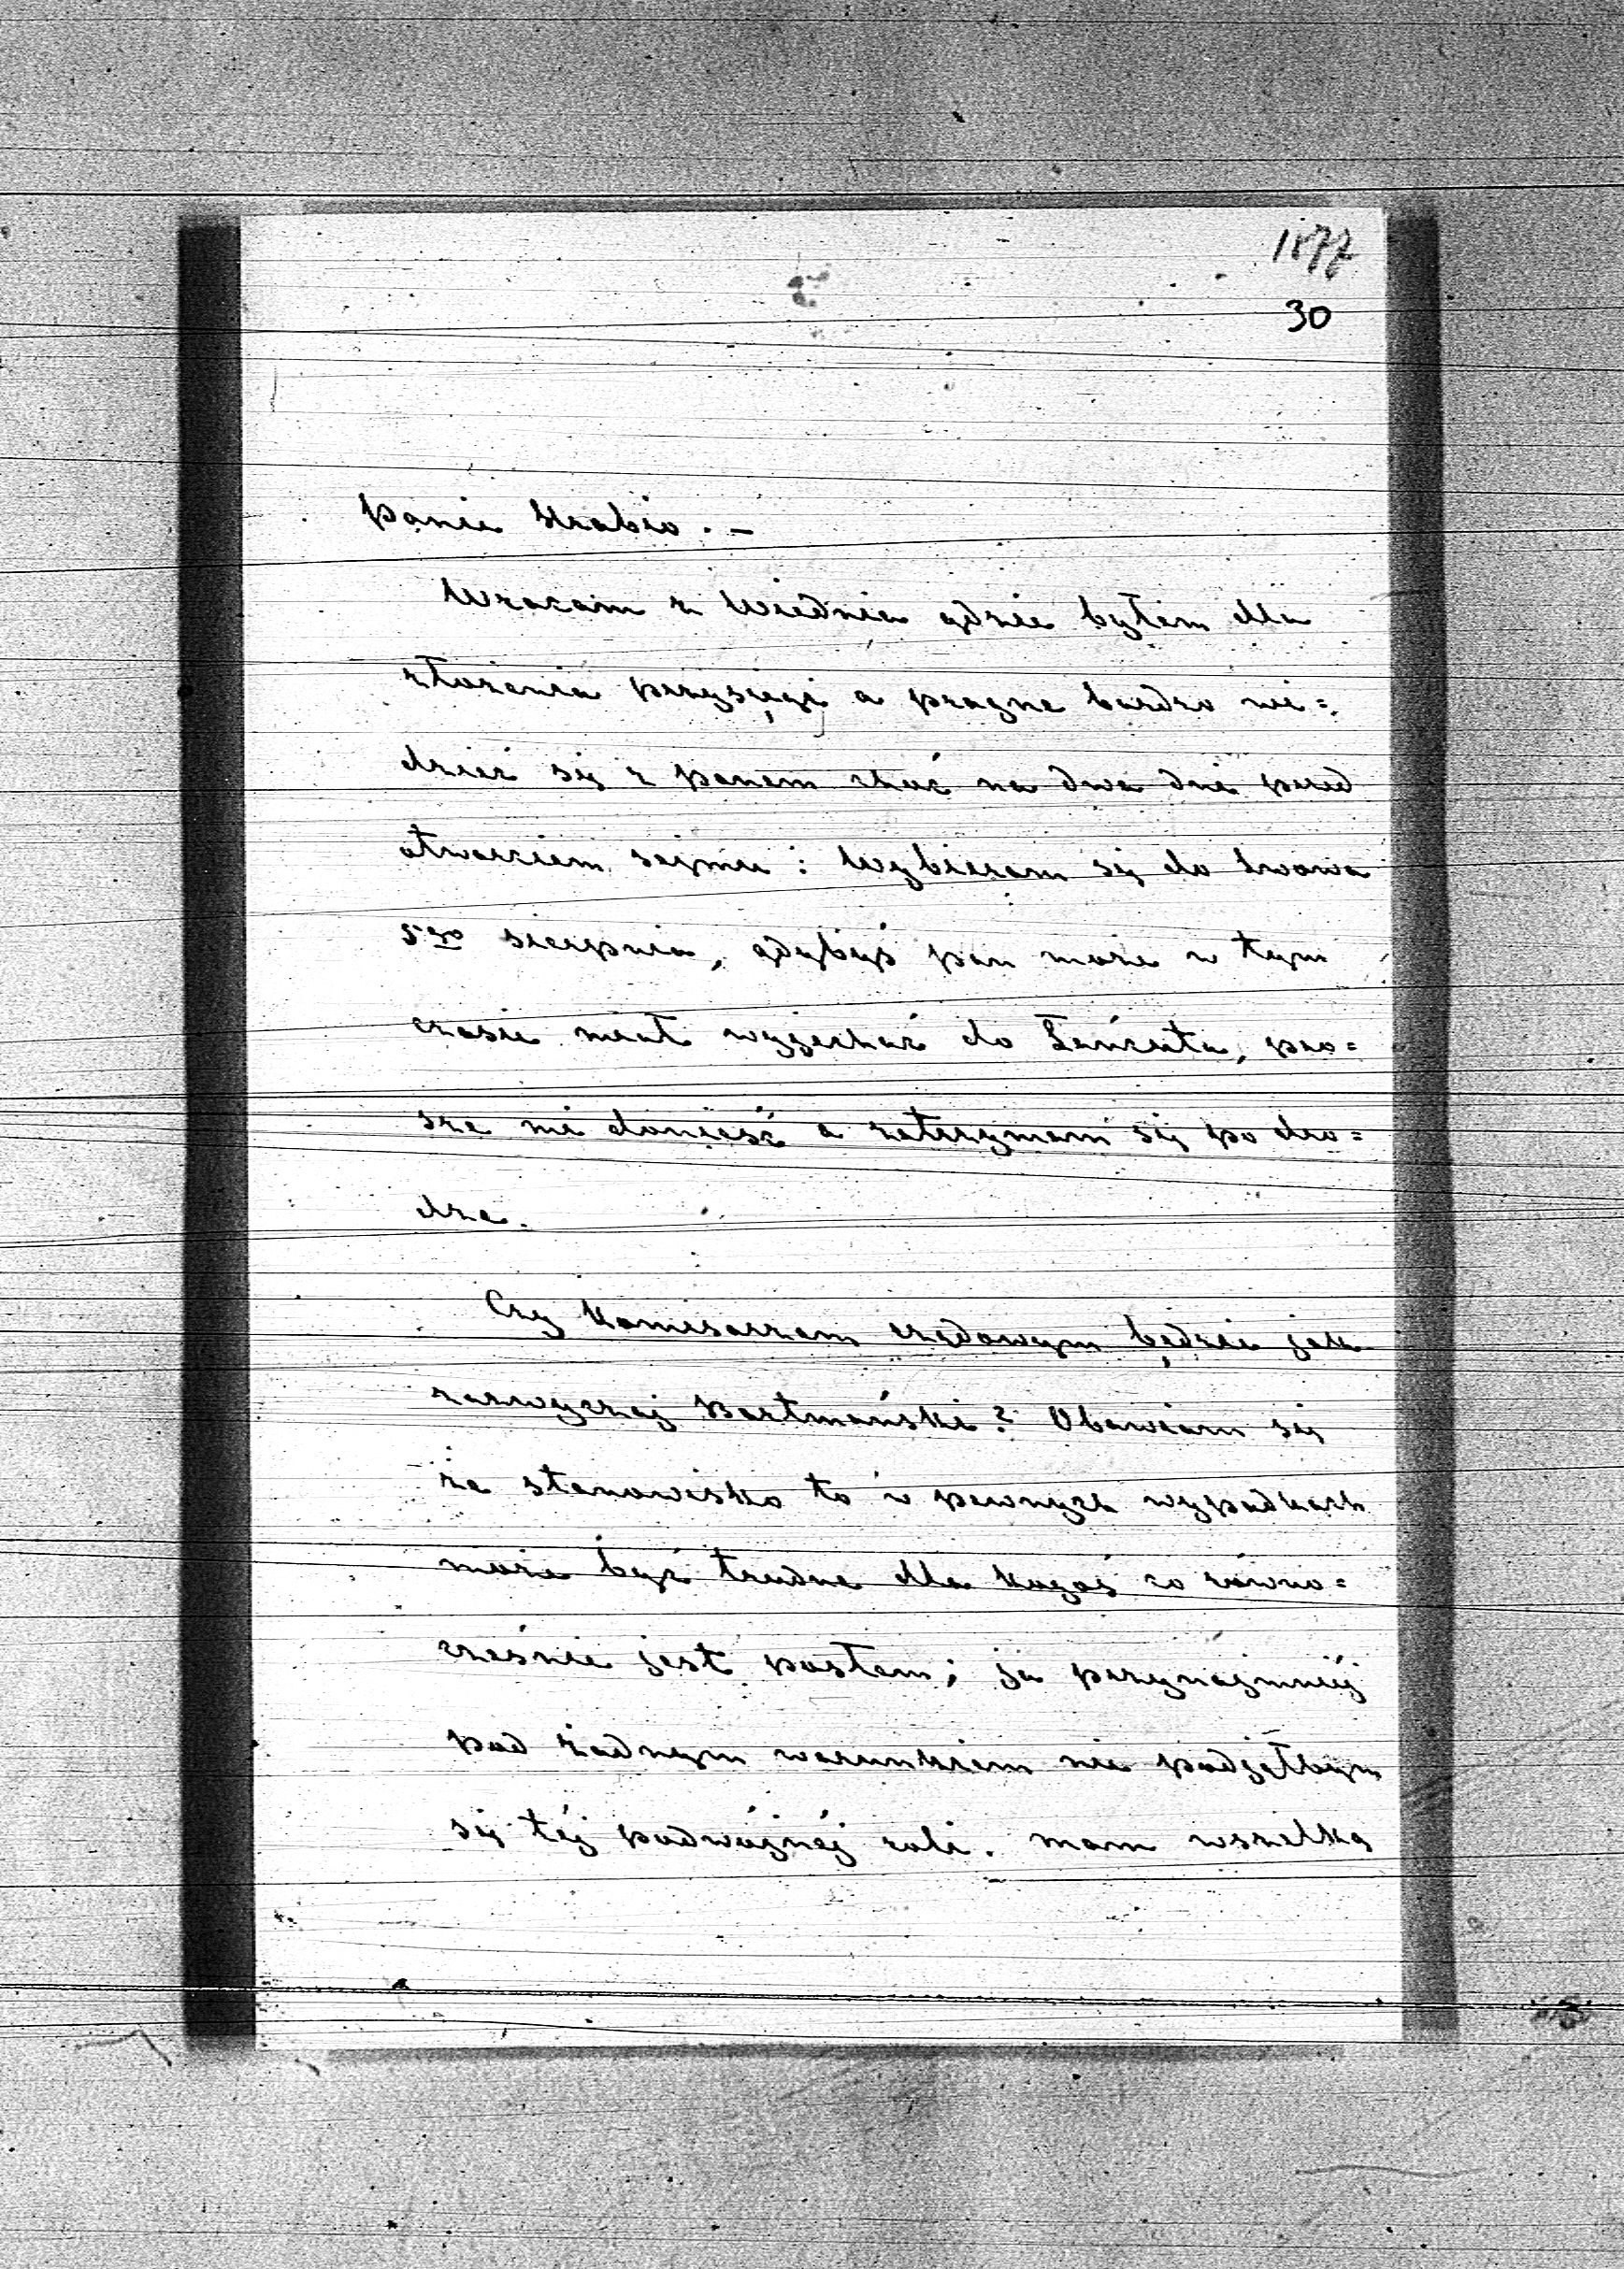 1877
30
Panie Hrabio. —
Wracam z Wiednia gdzie byłem dla
złożenia przysięgi a pragnę bardzo wi=
dzieć się z panem choć na dwa dni przed
otwarciem sejmu: Wybieram się do Lwowa
5go sierpnia, gdybyś pan może w tym
czasie miał wyjechać do Łańcuta, pro=
szę mi donieść a zatrzymam się po dro=
dze.
Czy Komisarzem rządowym będzie jak
zazwyczaj Bartmański? Obawiam się
że stanowisko to w pewnych wypadkach
może być trudne dla kogoś co równo=
cześnie jest posłem; ja przynajmniéj
pod żadnym warunkiem nie podjąłbym
się téj podwójnéj roli. Mam wszelką